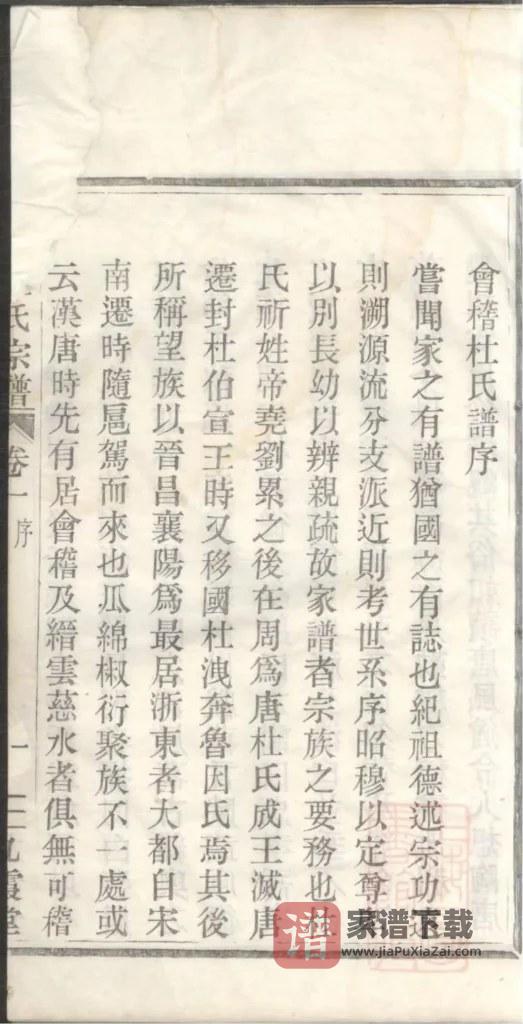 會稽杜氏譜序
嘗聞家之有譜猶國之有誌也紀祖德述宗功遠
則溯源流分支派近則考世系序昭穆以定尊
以別長幼以辨親疏故家譜者宗族之要務也杜
氏祈姓帝堯劉累之後在周爲唐杜氏成王滅唐
遷封杜伯宣王時又移國杜洩奔魯因氏焉其後
所稱望族以晉昌襄陽爲最居浙東者大都自宋
南遷時隨扈駕而來也瓜綿椒衍聚族不一處或
云漢唐時先有居會稽及縉雲慈水者俱無可稽
氏宗譜 卷一 序 一 九霞堂
譜
家谱下载
www.jiaPuXiaZai.com